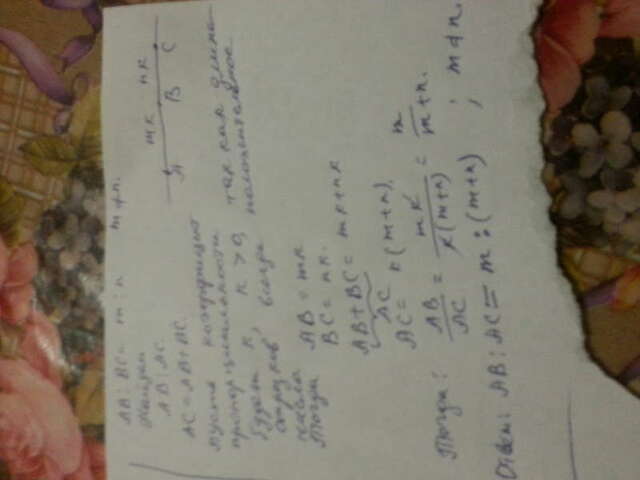 AB : BC = m : n m ≠ n.
Найдем
AB : AC.
AC = AB + BC.
mк nк
A B C
пусть коэффициент
пропорциональности
будет к, к > 0, так как длина
отрезков всегда положительное
число
Тогда AB = mк
BC = nк.
AB + BC = mк + nк
AC
AC = к(m+n).
Тогда: AB/AC = mк/к(m+n) = m/m+n.
Ответ: AB : AC = m : (m+n) ; m ≠ n.